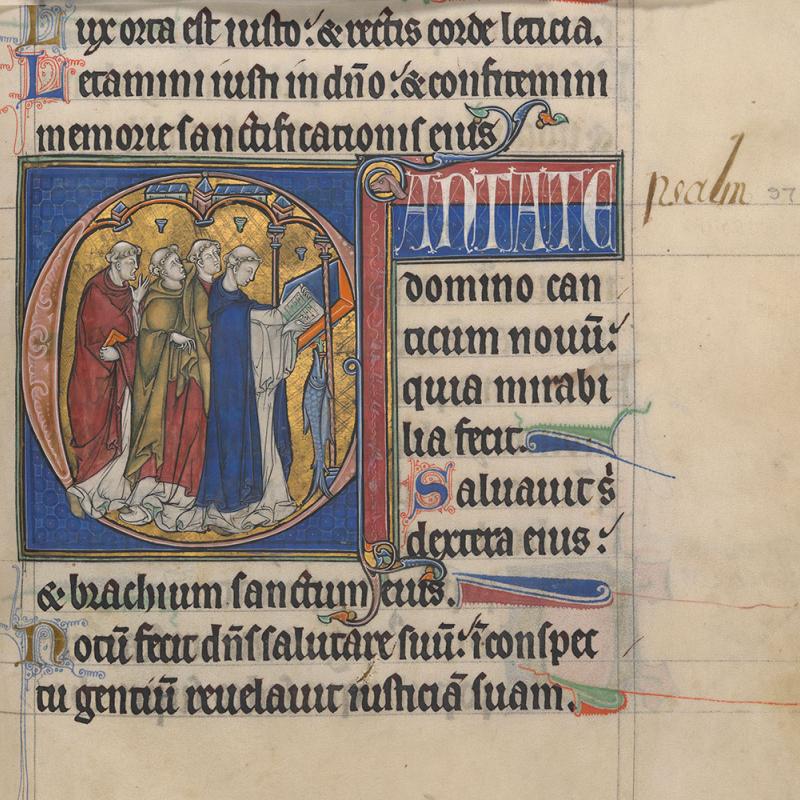 Lux orta est iusto: & rectis corde leticia.
Letamini iusti in dño: & confitemini
memorie sanctificationis eius
CANTATE
psalm 97
domino can
ticum nouū:
quia mirabi
lia fecit.
Saluauit s
dextera eius:
& brachium sanctum eius.
Notū fecit dñs salutare suū: ī conspec
tu gentiū reuelauit iusticiā suam.